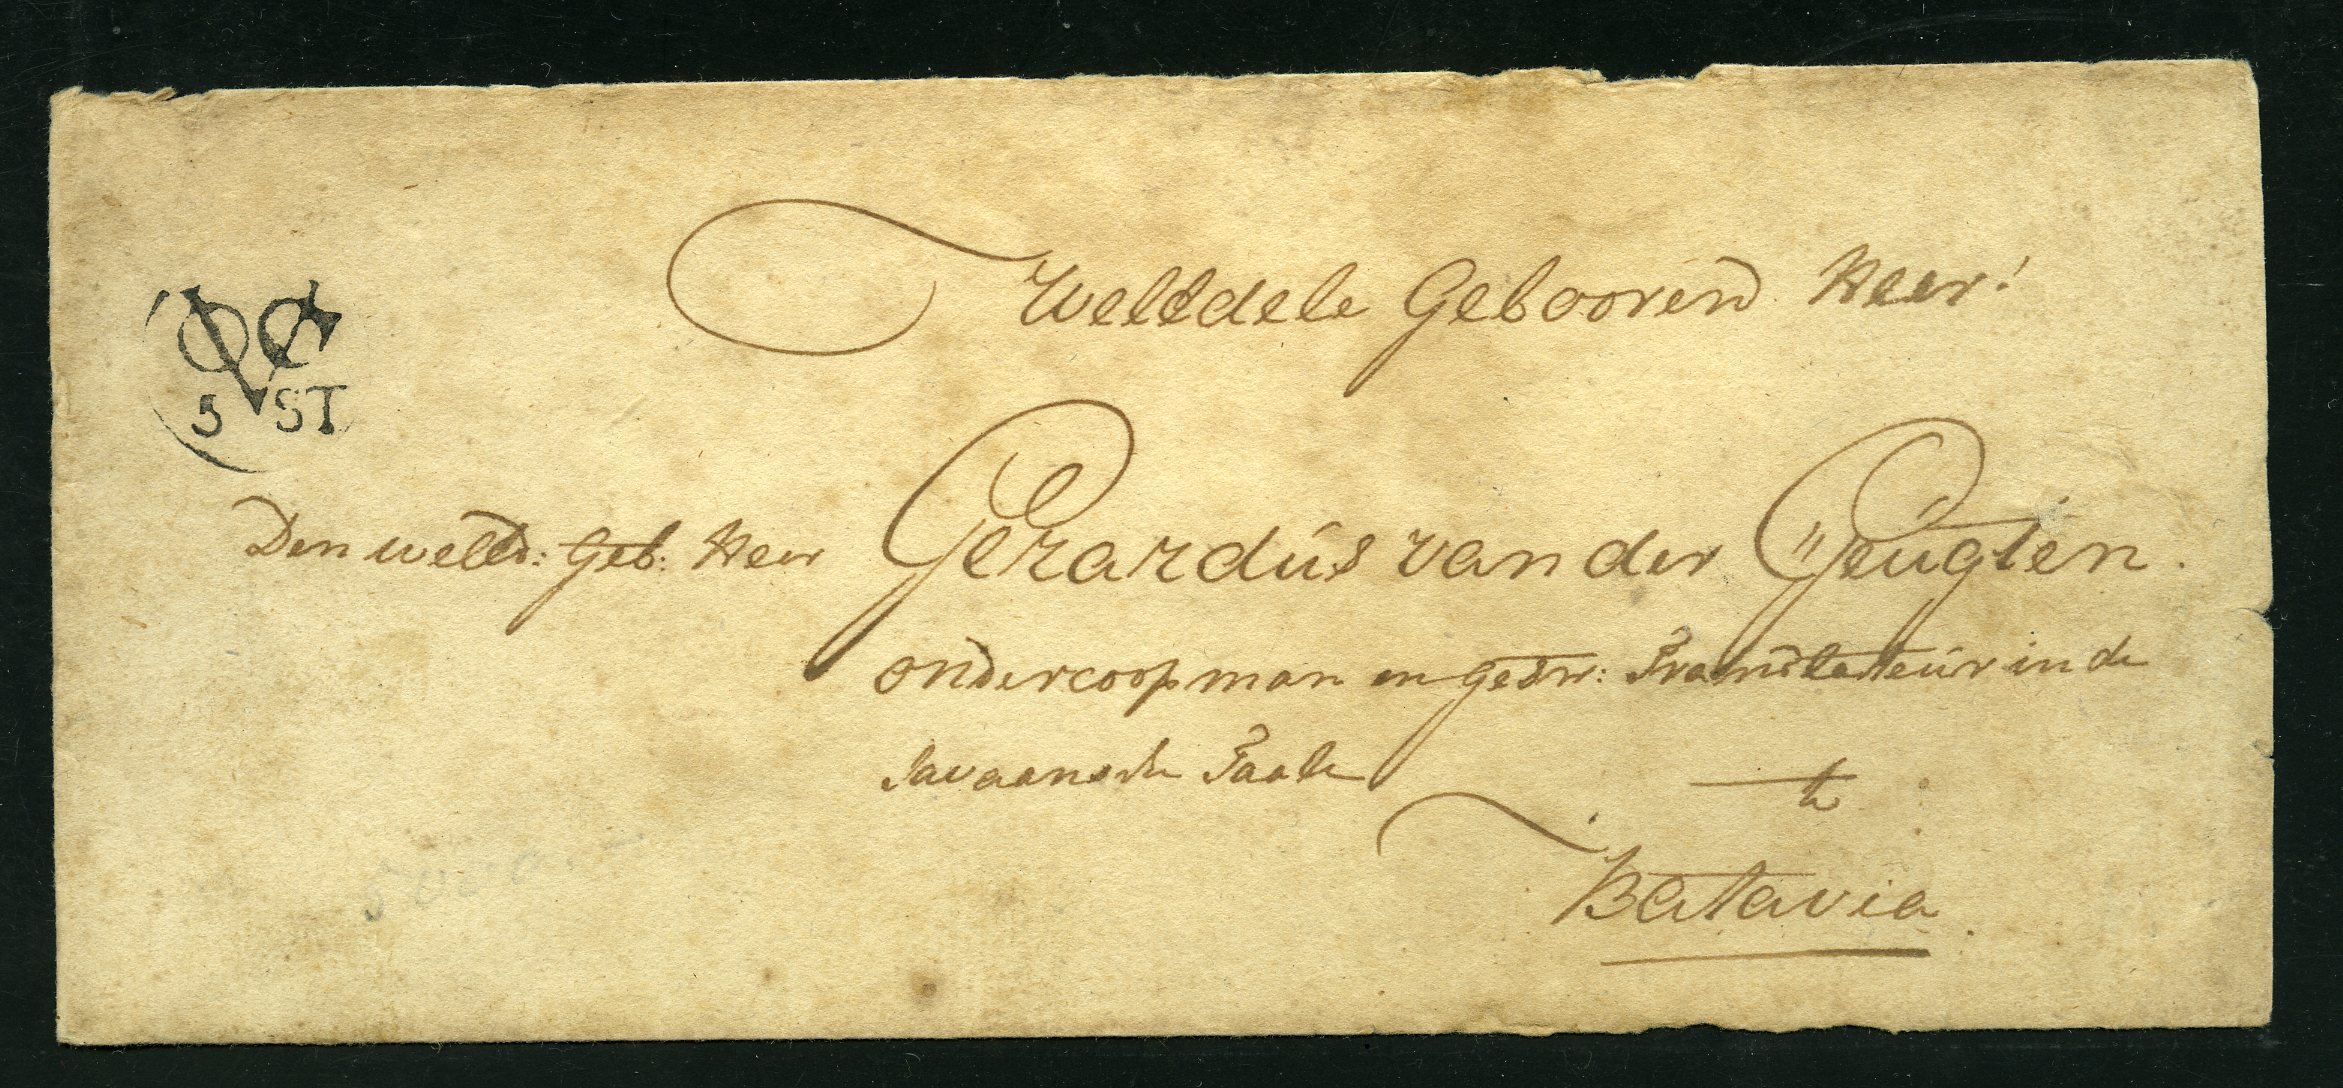 VOC
5 ST
Weledele Gebooren Heer!
Den weled: Geb: Heer Gerardús van der
ondercoopman en gesw: Translateúr in de
Javaansche Taale
te
Batavia